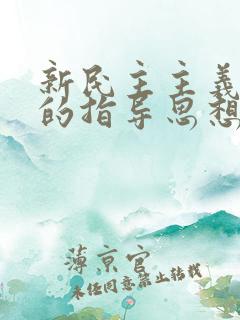 新民主主義
的指导思想
薄京官
未任同意禁止转载